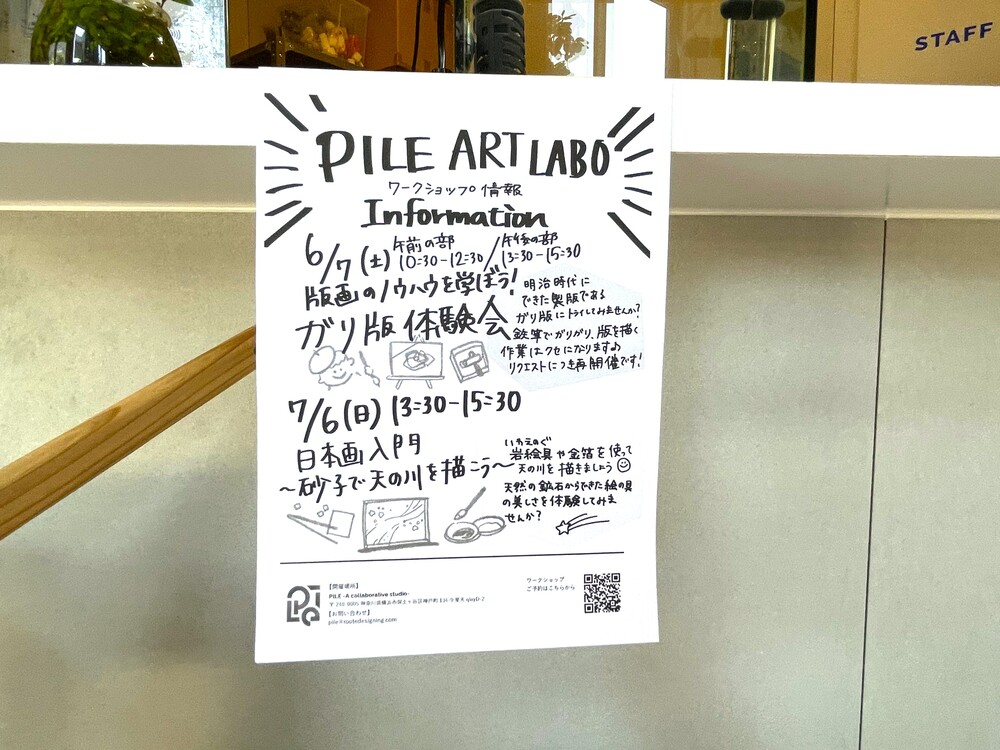 STAFF
PILE ART LABO
ワークショップ情報
Information
6/7(土) 午前の部 10:30-12:30 / 午後の部 13:30-15:30
版画のノウハウを学ぼう!
ガリ版体験会
明治時代に
できた製版である
ガリ版にトライしてみませんか?
鉄筆でガリガリ、版を描く
作業はクセになりますよ
リクエストにつき再開催です!
7/6(日) 13:30-15:30
日本画入門
~砂子で天の川を描こう~
いわえのぐ
岩絵具や金箔を使って
天の川を描きましょう
天然の鉱石からできた絵の具
の美しさを体験してみま
せんか?
【開催場所】
PILE -A collaborative studio-
【お問い合わせ】
pile@rautedesigning.com
ワークショップ
ご予約はこちらから